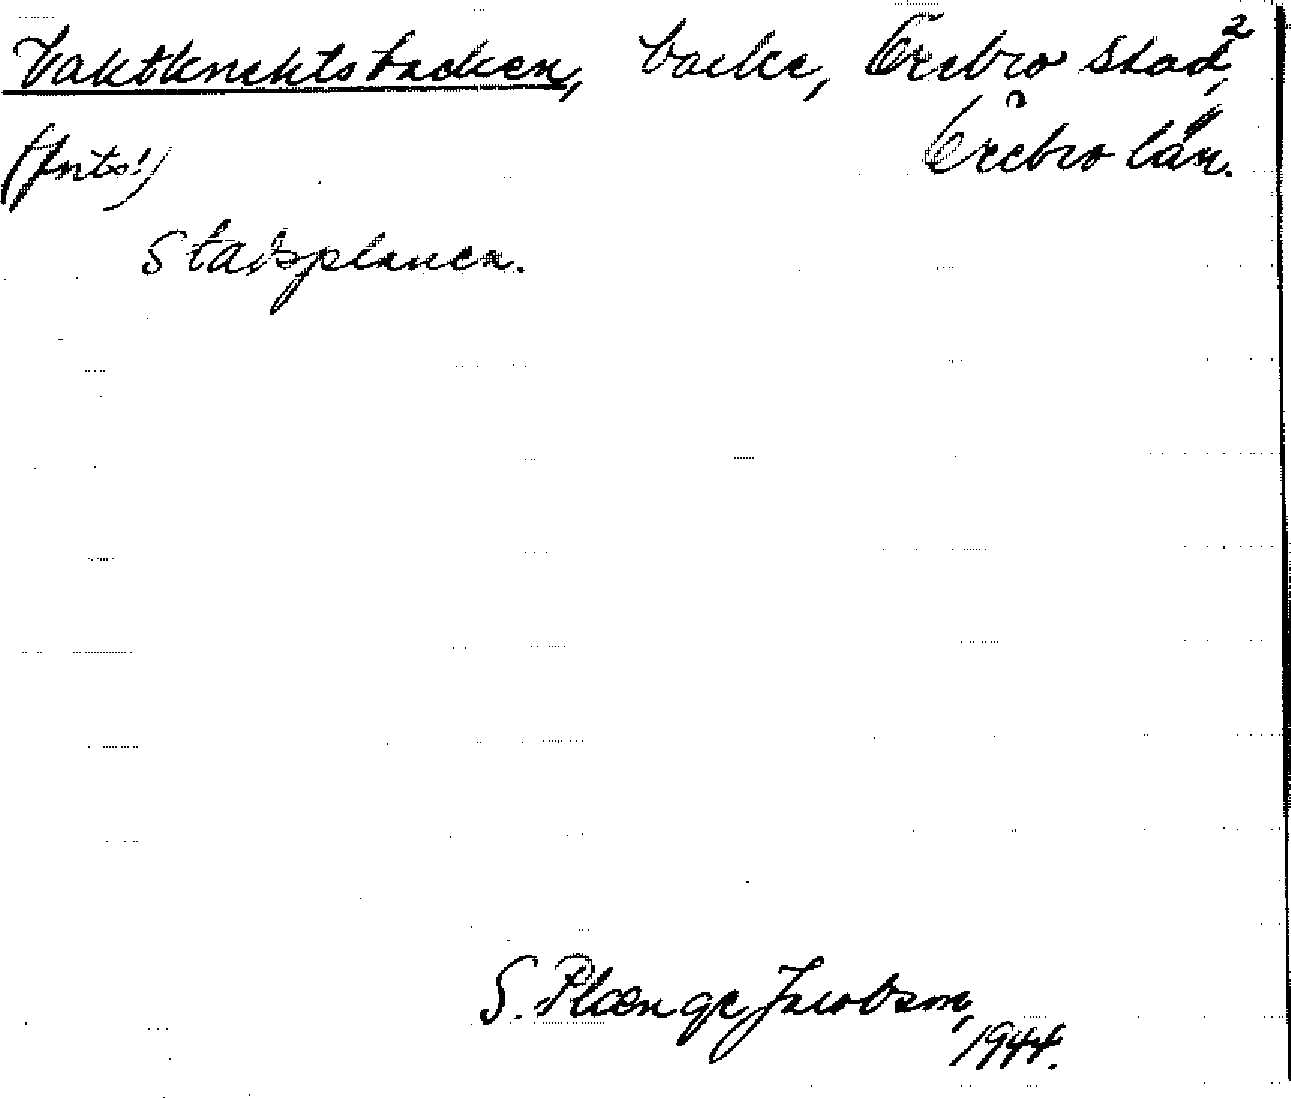 Vaktknektsbacken, backe, Örebro stad,²
(foto!) Örebro län.
Stadsplanen.
S. Plænge Jacobson,
1944.